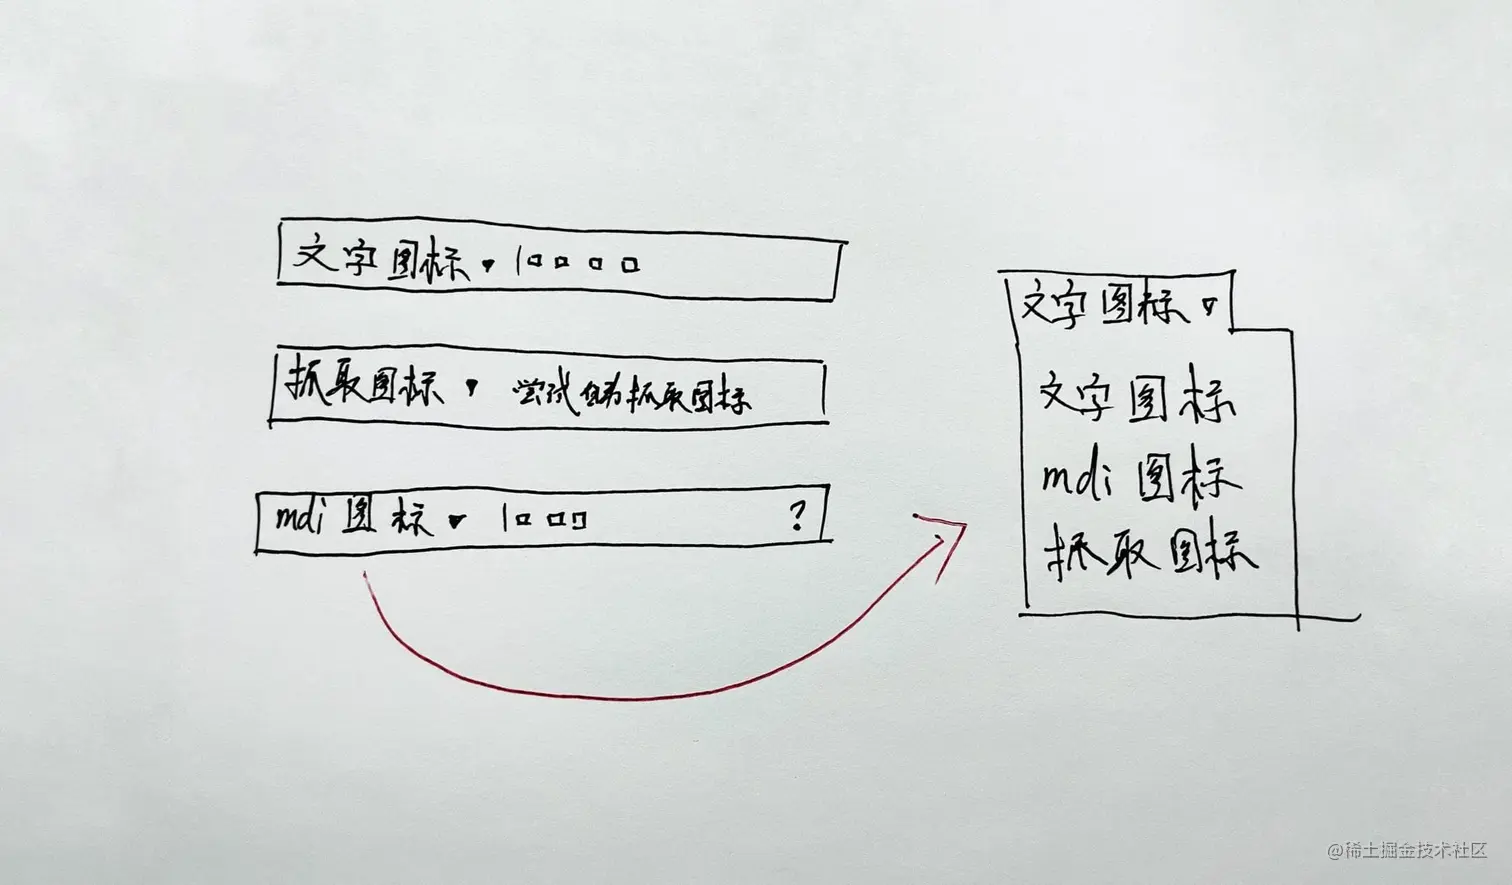 文字图标
抓取图标 尝试 抓取图标
mdi 图标 ?
文字图标
文字图标
mdi 图标
抓取图标
@稀土掘金技术社区